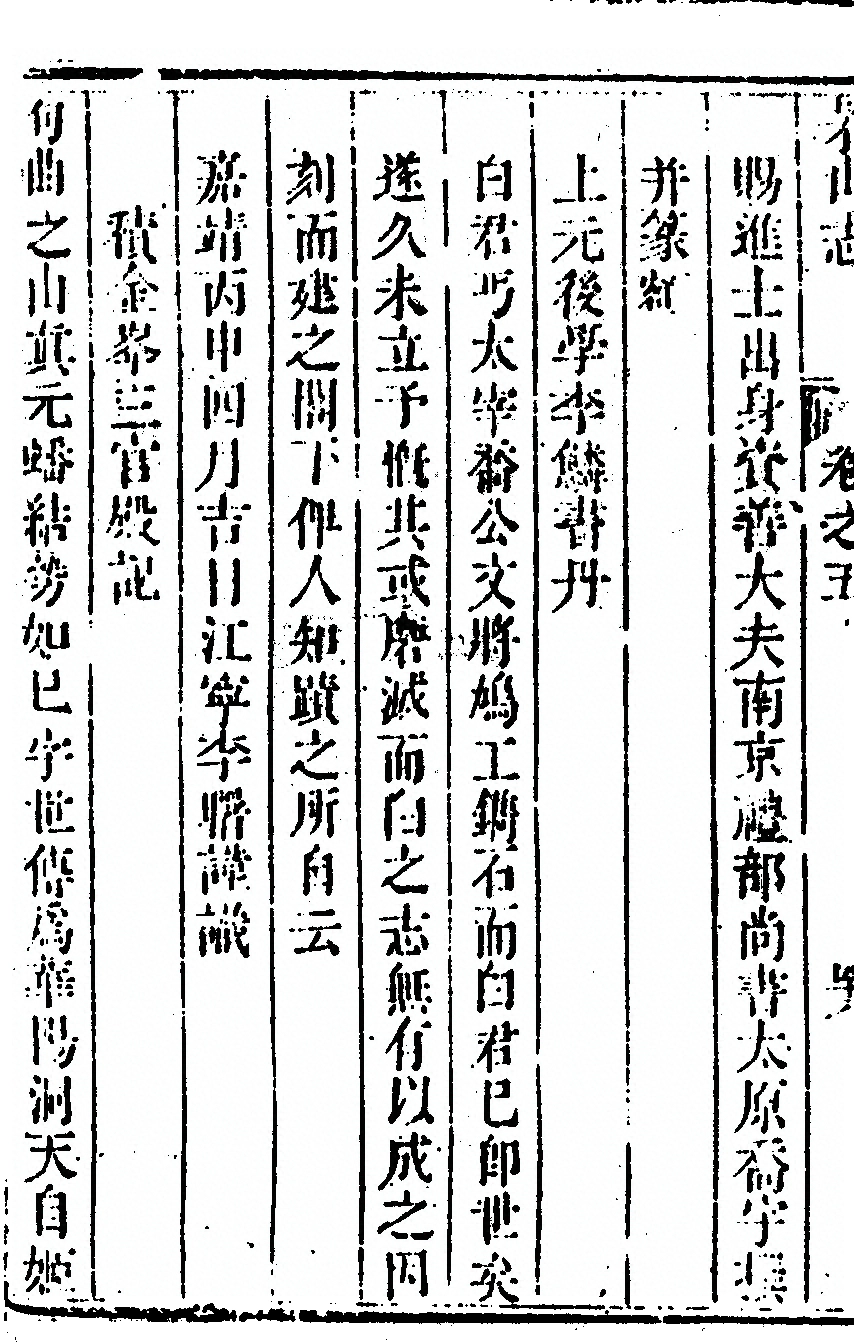 山志 卷之五
賜進士出身資善大夫南京禮部尚書太原喬宇撰
并篆額
上元後學李鱗書丹
白君丐太宰喬公文將鳩工鐫石而白君已即世矣
遂久未立予慨其或磨滅而白之志無有以成之因
刻而建之閣下俾人知蹟之所自云
嘉靖丙申四月吉日江寧李勝謹識
積金峯三官殿記
句曲之山真元蟠結勢如已字世傳爲華陽洞天自姬